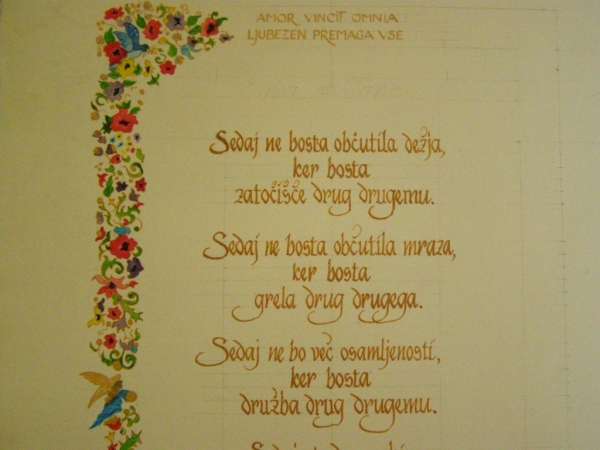 AMOR VINCIT OMNIA
LJUBEZEN PREMAGA VSE
Sedaj ne bosta občutila dežja,
ker bosta
zatočišče drug drugemu.
Sedaj ne bosta občutila mraza,
ker bosta
grela drug drugega.
Sedaj ne bo več osamljenosti,
ker bosta
družba drug drugemu.